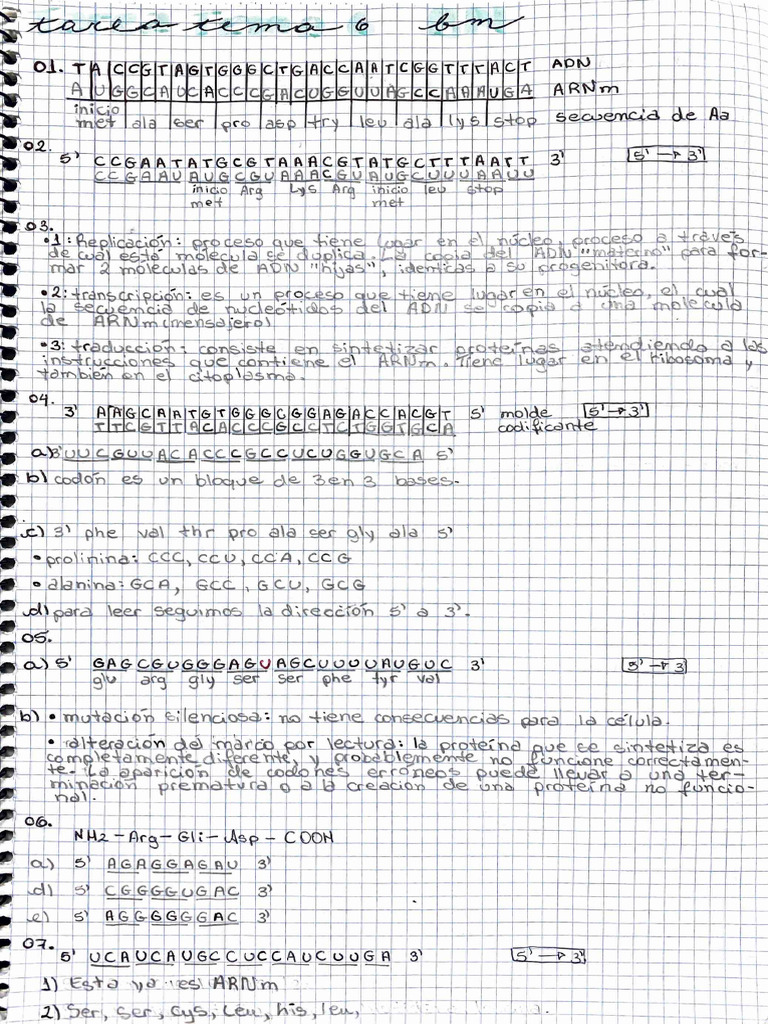 tarea tema 6 bm
01. T A C C G T A G T G G G C T G A C C A A T C G G T T T A C T ADN
A U G G C A U C A C C C G A C U G G U U A G C C A A A U G A ARNm
inicio
met ala ser pro asp try leu ala lys stop secuencia de Aa
02.
5' CCGAATATGCGTAAACGTATGCTTTAATT 3' 5' → 3'
CCGAAUAUGCGUAAACGUAUGCUUUAAUU
inicio Arg Lys Arg inicio leu stop
met met
03.
• 1: Replicación: proceso que tiene lugar en el núcleo, proceso a través
de cual esta molecula se duplica. La copia del ADN "materno" para for-
mar 2 moleculas de ADN "hijas", identicas a su progenitora.
• 2: transcripción: es un proceso que tiene lugar en el núcleo, el cual
la secuencia de nucleótidos del ADN se copia a una molecula
de ARNm (mensajero)
• 3: traducción: consiste en sintetizar proteínas atendiendo a las
instrucciones que contiene el ARNm. Tiene lugar en el ribosoma y
también en el citoplasma.
04.
3' AAGCAATGTGGGCGGAGACCACGT 5' molde 5' → 3'
TTCGTTACACCCGCCTCTGGTGCA codificante
a) 3' UUCGUUACACCCGCCUCUGGUGCA 5'
b) codón es un bloque de 3 en 3 bases.
c) 3' phe val thr pro ala ser gly ala 5'
• prolinina: CCC, CCU, CCA, CCG
• alanina: GCA, GCC, GCU, GCG
d) para leer seguimos la dirección 5' a 3'.
05.
a) 5' GAGCGUGGGAGUAGCUUUUAUGUC 3' 5' → 3'
glu arg gly ser ser phe tyr val
b) • mutación silenciosa: no tiene consecuencias para la célula.
• alteración del marco por lectura: la proteína que se sintetiza es
completamente diferente, y probablemente no funcione correctamen-
te. La aparición de codones erroneos puede llevar a una ter-
minación prematura o a la creación de una proteína no funcio-
nal.
06.
NH2-Arg-Gli-Asp-COOH
a) 5' AGAGGAGAU 3'
d) 5' CGGGGUGAC 3'
e) 5' AGGGGGGAC 3'
07.
5' UCAUCAUGCCUCCAUCUUGA 3' 5' → 3'
1) Esta ya es ARNm
2) Ser, ser, cys, Leu, his, leu,